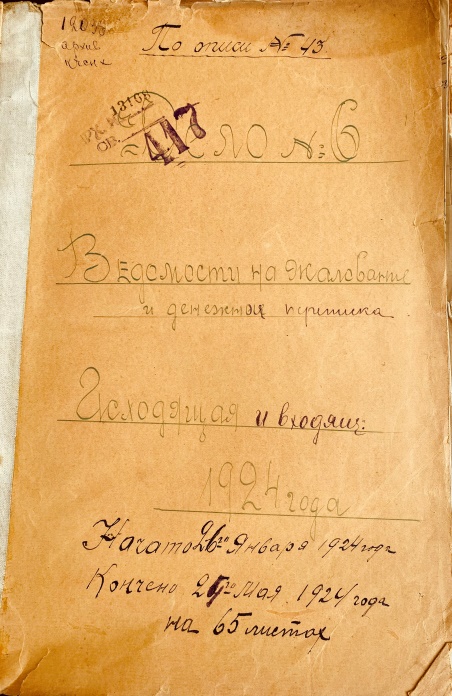 архив
По описи № 43
13108
417
Дело № 6
Ведомости на жалование
и денежная переписка
Исходящая и входящ:
1924 года
Начато 26го Января 1924 года
Кончено 29го Мая 1924 года
на 65 листах